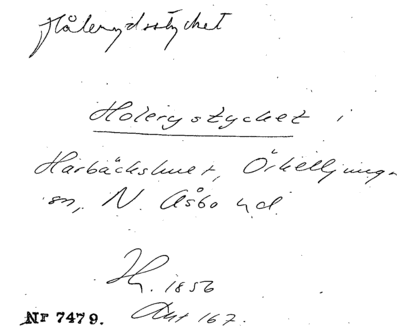 Hålerydsstycket
Holerystycket i
Harbäckshult, Örkelljunga
sn, N. Åsbo hd.
Hy. 1856
Akt 167.
Nr 7479.